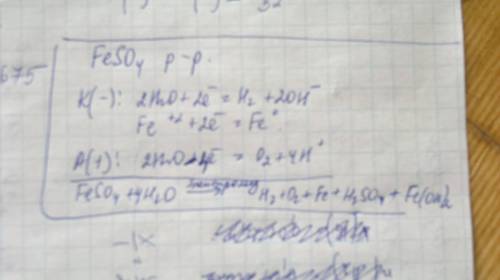 675
FeSO₄ р-р.
K(-): 2H₂O+2e⁻ = H₂ +2OH⁻
Fe⁺²+2e⁻ = Fe°.
A(+): 2H₂O-4e⁻ = O₂+4H⁺
FeSO₄+4H₂O электролиз H₂+O₂+Fe+H₂SO₄+Fe(OH)₂